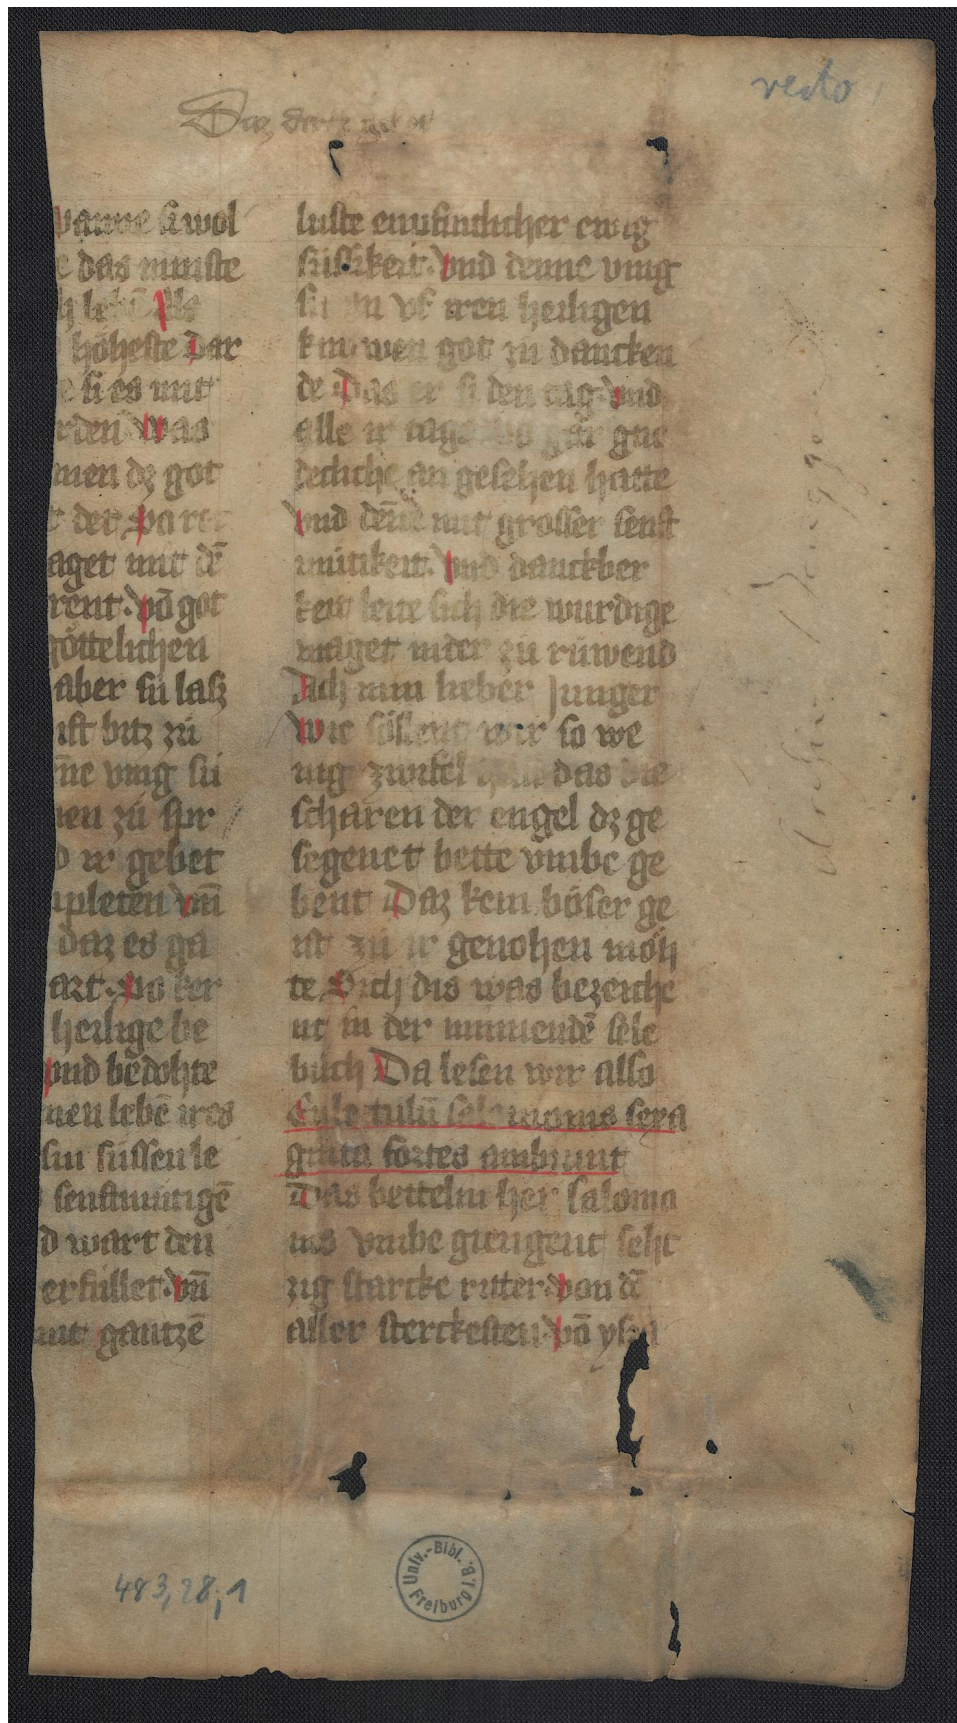 verto
Daz
wanne si wol
e das minste
h lebē Als
höheste Dar
e si es mit
rden Was
men dz got
t der Porte
aget mit dē
rent. vō got
göttelichen
aber sü lasz
ist bitz zü
ēne ving sü
nen zü spr
d ir gebet
mpleten vnn̄
daz es ga
art. Do ker
heilige be
vnd bedohte
nen lebē ires
sin süssen le
senftmütigē
d wart den
erfüllet. vnn̄
mit gantzē
luste enpfintlicher ewig
süssikeit. Vnd denne ving
sü an vf iren heiligen
knuwen got zu dancken
de Das er si den tag. vnd
alle ir tage so gar gne
decliche an gesehen hatte
Vnd dēne mit grosser senft
mütikeit. Vnd danckber
keit leite sich die wurdige
maget nider zü rüwend
Ach min lieber Junger
Wie söllent wir so we
nig zwifel han das die
scharen der engel dz ge
segenet bette vmbe ge
bent Daz kein böser ge
ist zü ir genohen möh
te Sich dis was bezeiche
nt in der minnendē sele
büch Da lesen wir also
En lectulū salomonis sexa
ginta fortes ambiunt
Das bettelin her salomo
nis vmbe giengent sehc
zig starcke ritter. von dē
aller sterckesten. vō ysra
483,28,1
Univ.-Bibl. Freiburg i. B.